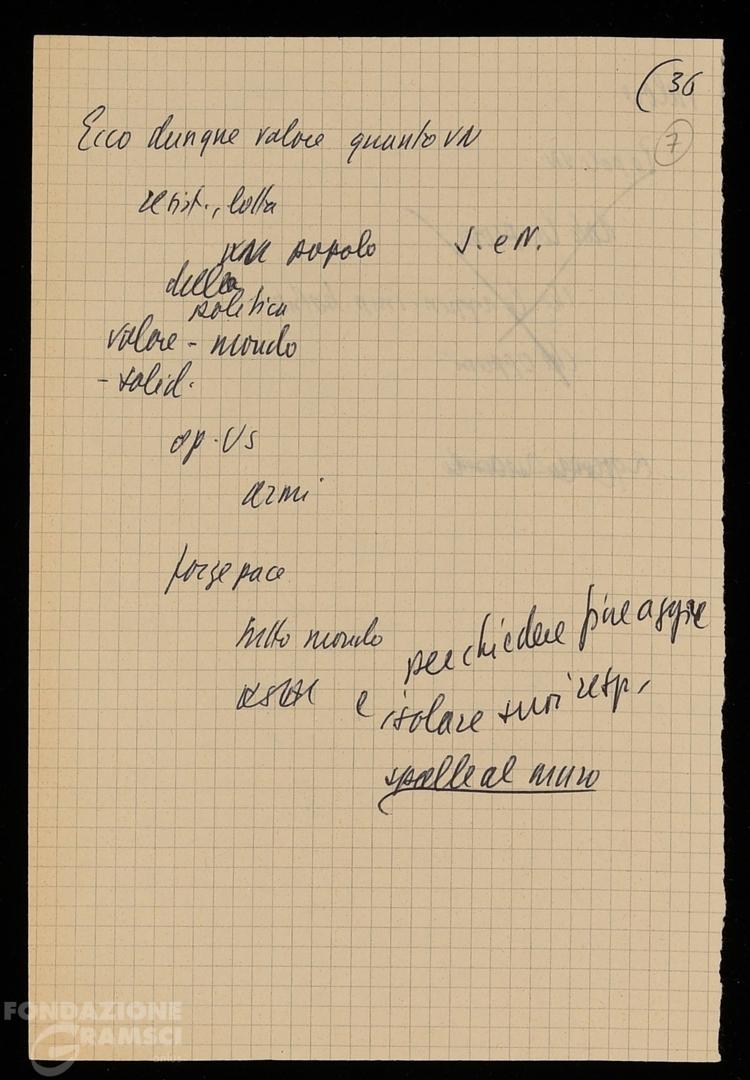 (36
7
Ecco dunque valore quanto VN
resist., lotta
popolo S. e N.
della
politica
valore - mondo
- solid.
op. Us
armi
forze pace
tutto mondo
per chiedere fine aggre
e isolare suoi resp.
spalle al muro
FONDAZIONE
GRAMSCI
onlus